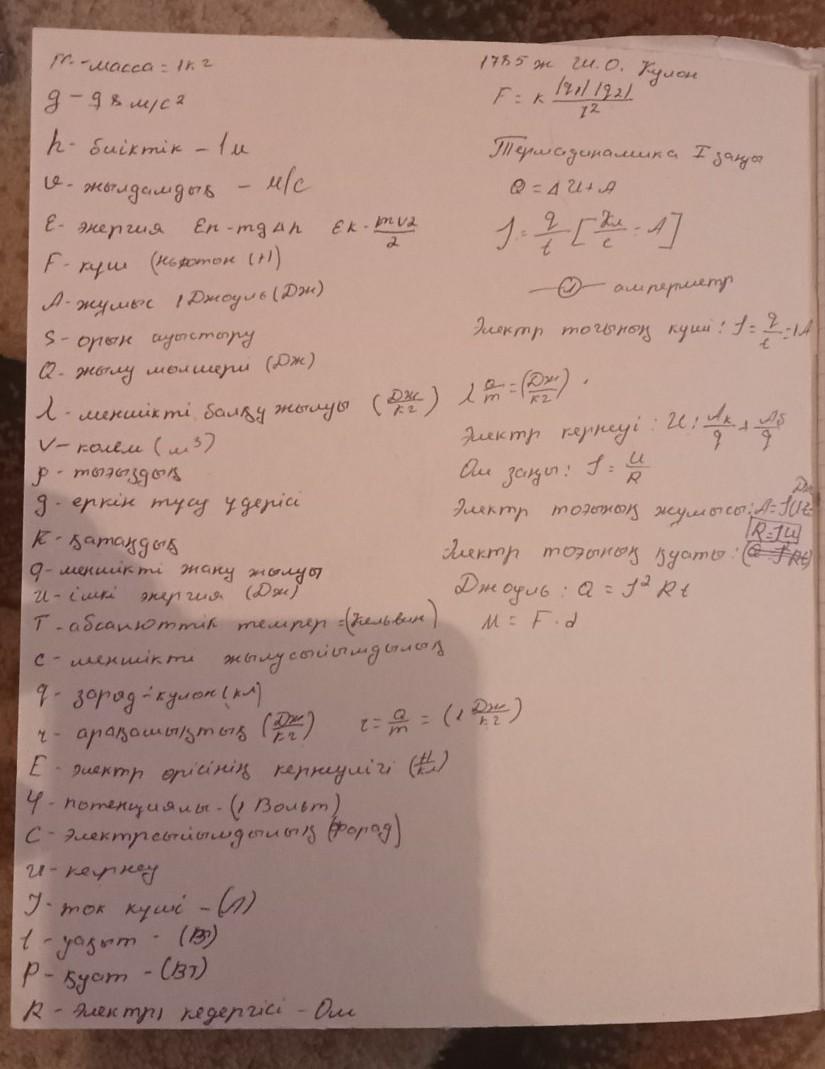 m - масса = 1кг
g - 9 8 м/с²
h - биіктік - 1м
υ - жылдамдық - м/с
E - энергия Eп - mgΔh Eк - mv2/2
F - күш (ньютон (Н)
A - жұмыс 1 Джоуль (Дж)
S - орын ауыстыру
Q - жылу мөлшері (Дж)
λ - меншікті балқу жылуы (Дж/кг)
V - көлем (м³)
ρ - тығыздық
g - еркін түсу үдерісі
K - қатаңдық
q - меншікті жану жылуы
u - ішкі энергия (Дж)
T - абсалюттік темпер = (Кельвин)
c - меншікті жылусыйымдылық
q - заряд - кулон (кл)
r - арақашықтық (Дж/кг) r = Q/m = (1 Дж/кг)
E - электр өрісінің кернеулігі (Н/кл)
φ - потенциялы - (1 Вольт)
C - электрсыйымдылық (фарад)
u - кернеу
J - ток күші - (А)
t - уақыт - (Вт)
P - қуат - (Вт)
R - электрі кедергісі - Ом
1785 ж Ш. О. Кулон
F = к |q1| |q2| / r²
Термадинамика I заңы
Q = Δ U + A
J = q/t [Кл/с = A]
амперметр
Электр тогының күші : J = q/t = 1A
λ Q/m = (Дж/кг)
Электр кернеуі : U : Aк/q + Aб/q
Ом заңы : J = U/R
Дж
Электр тоғының жұмысы : A = JUt
R = JU
Электр тоғының қуаты :
Джоуль : Q = J² Rt
M = F · d